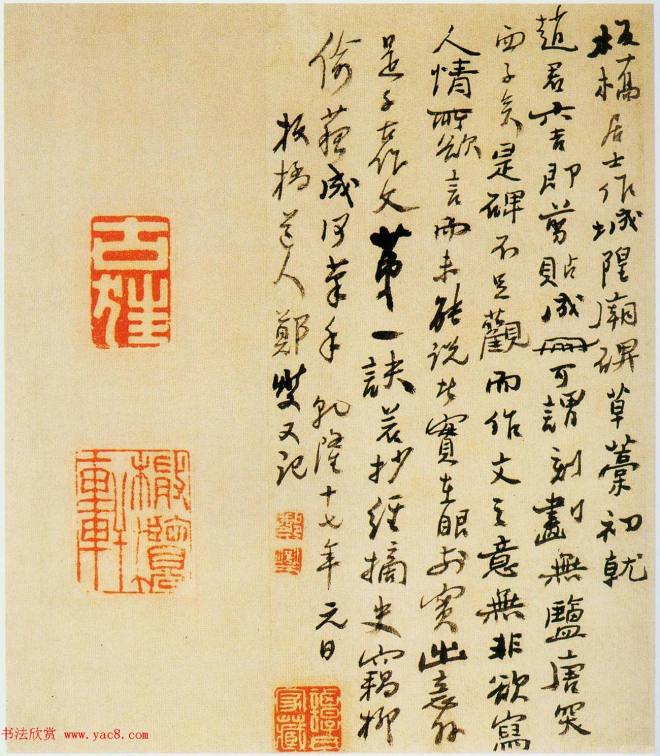 板橋居士作城隍廟碑草藁初就
趙君六吉即剪貼成冊可謂刻畫無鹽唐突
西子矣是碑不足觀而作文之意無非欲寫
人情所欲言而未能說者實在眼前實出意外
是千古作文第一訣若抄經摘史窺柳
偷蘇成何筆手乾隆十七年元日
板橋道人鄭燮又記
书法欣赏 www.yac8.com